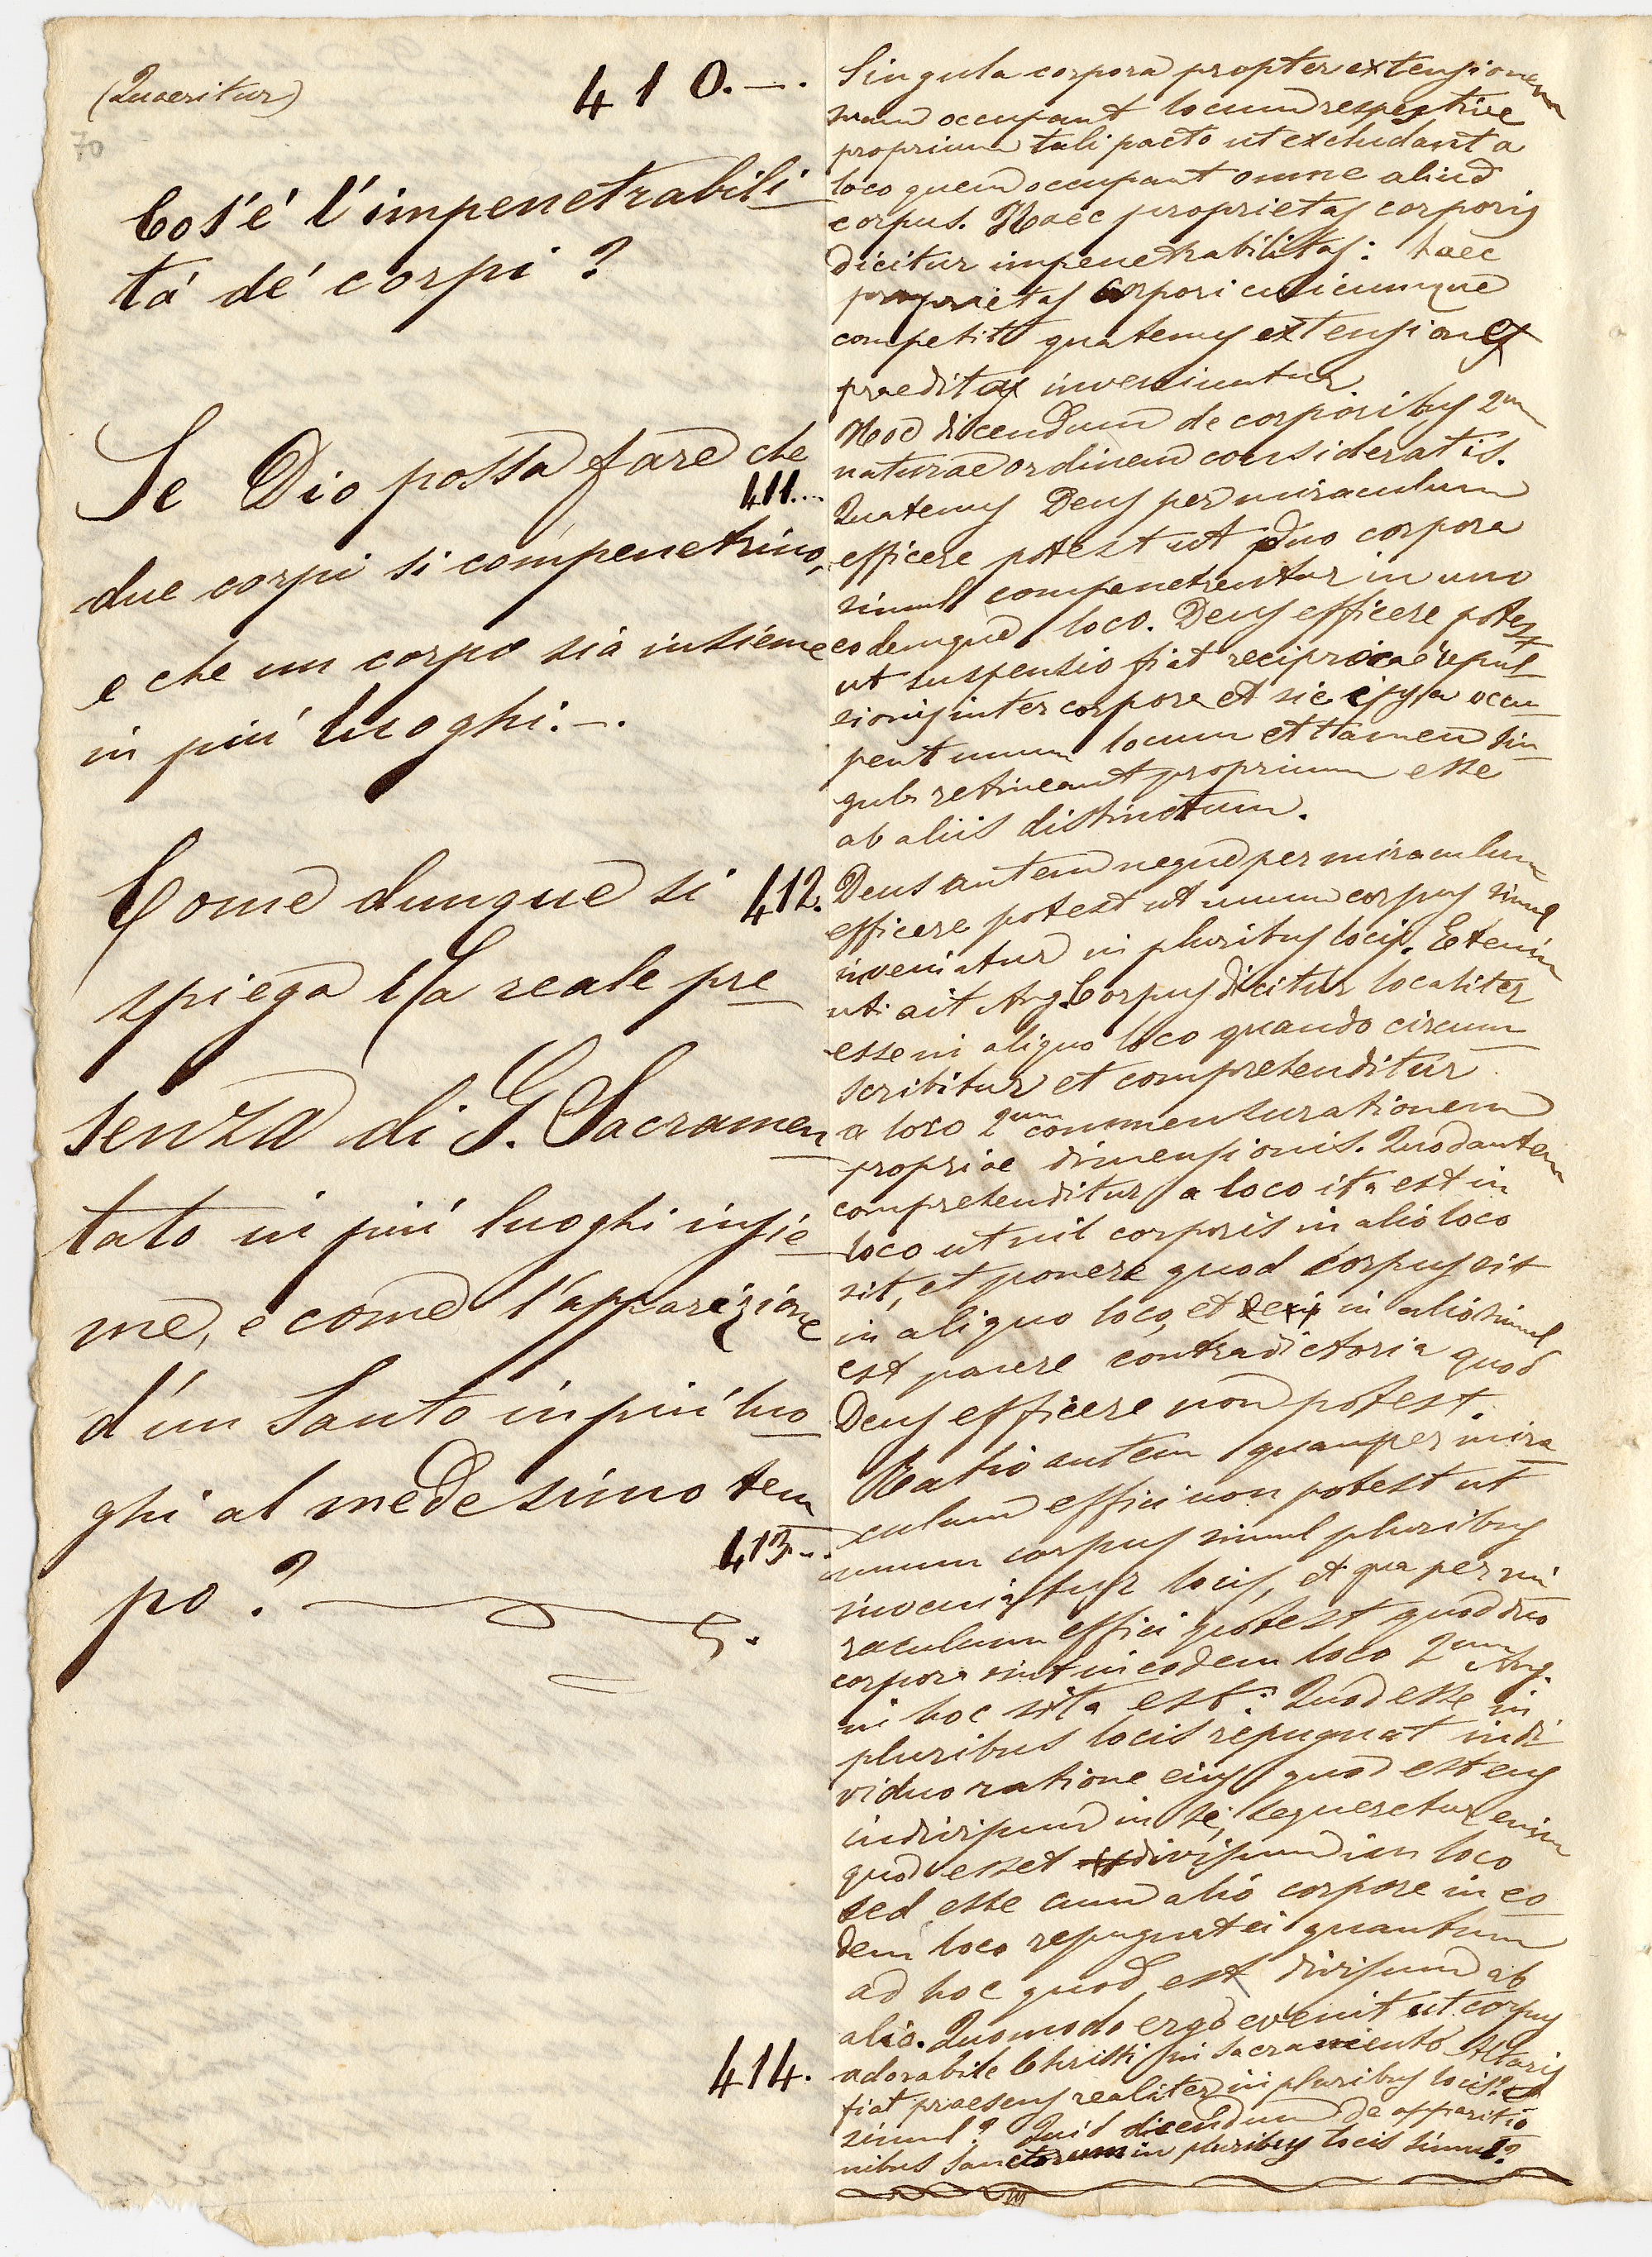 (Quaeritur)
70
410.—.
Cos'é l'impenetrabili
tá dé corpi?
Se Dio possa fare che
411...
due corpi si compenetrino,
e che un corpo sia insieme
in piú luoghi.—.
Come dunque si
412.
spiega la reale pre
senza di G. Sacramen
tato in piú luoghi insie
me, e come l'apparizione
d'un Santo in piú luo
ghi al medesimo tem
413—.
po?
414.
Singula corpora propter extensionem
suam occupant locum respective
proprium tali pacto ut excludant a
loco quem occupant omne aliud
corpus. Haec proprietas corporis
dicitur impenetrabilitas: haec
proprietas corpori cuicumque
competit quatenus extensione
praedita inveniuntur
Hoc dicendum de corporibus 2um
naturae ordinem consideratis.
Quatenus Deus per miraculum
efficere potest ut duo corpora
simul compenetrentur in uno
eodemque loco. Deus efficere potest
ut suspensio fiat reciprocae repul
sionis inter corpora et sic ipsa occu
pent unum locum et tamen sin
gula retineant proprium esse
ab aliis distinctum.
Deus autem neque per miraculum
efficere potest ut unum corpus simul
inveniatur in pluribus locis. Etenim
uti ait Ang. Corpus dicitur localiter
esse in aliquo loco quando circum
scribitur et comprehenditur
a loco 2um commensurationem
propriae dimensionis. Quod autem
comprehenditur a loco ita est in
loco ut nil corporis in alio loco
sit, et ponere quod corpus sit
in aliquo loco, et in alio simul
est ponere contradictoria quod
Deus efficere non potest.
Ratio autem quam per mira
culum effici non potest ut
unum corpus simul pluribus
inveniatur locis, et qua per mi
raculum effici potest quod duo
corpora sint in eodem loco 2um Ang.
in hoc sita est: Quod esse in
pluribus locis repugnat indi
viduo ratione eius quod est ens
indivisum in se; sequeretur enim
quod esset divisum in loco
sed esse cum alio corpore in eo
dem loco repugnat ei quantum
ad hoc quod est divisum ab
alio. Quomodo ergo evenit ut corpus
adorabile Christi in Sacramento Altaris
fiat praesens realiter in pluribus locis
simul? Quid dicendum de apparitio
nibus Sanctorum in pluribus locis simul?